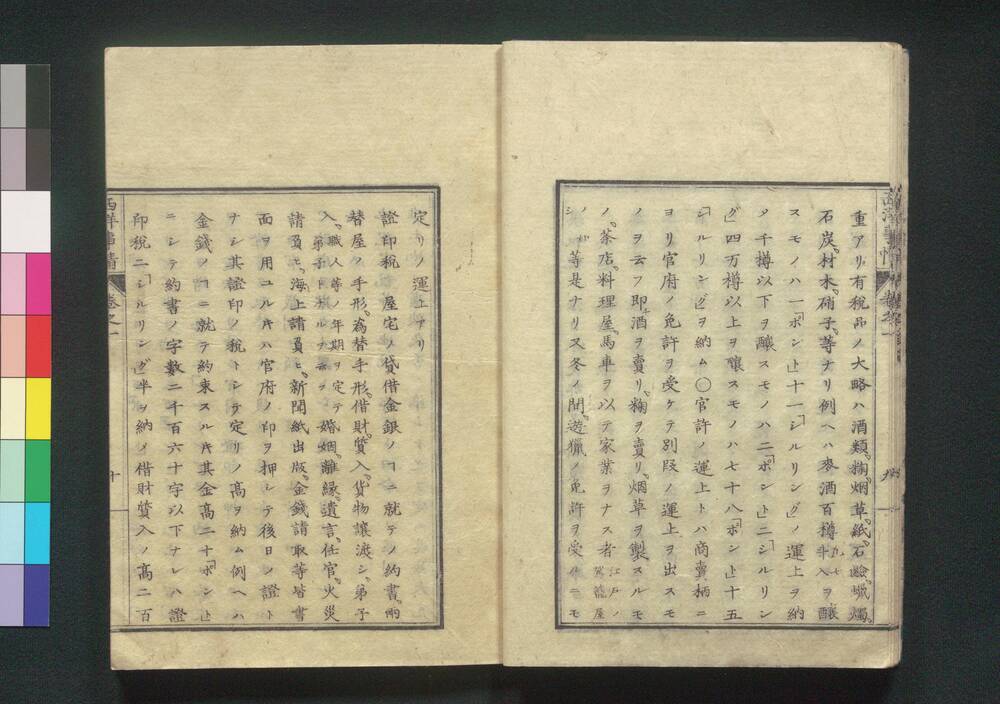 重アリ有税品ノ大略ハ酒類。麹。烟草。紙。石鹸。蠟燭。
石炭。材木。硝子。等ナリ例ヘハ麥酒百樽入ヲ釀
スモノハ一「ポント」十一「シルリング」ノ運上ヲ納
タ千樽以下ヲ釀スモノハ二「ポント」二「シルリン
グ」四万樽以上ヲ釀スモノハ七十八「ポント」十五
「シルリング」ヲ納ム〇官許ノ運上トハ商賣柄ニ
ヨリ官府ノ免許ヲ受ケテ別段ノ運上ヲ出スモ
ノヲ云フ即酒ヲ賣リ。麹ヲ賣リ。烟草ヲ製スルモ
ノ。茶店。料理屋。馬車ヲ以テ家業ヲナス者江戸ノ駕籠屋
ノ等是ナリ又冬ノ間。遊獵ノ免許ヲ受ルニモ
定リノ運上アリ
證印税 屋宅ノ貸借金銀ノヿニ就テノ約書。兩
替屋ノ手形。為替手形。借財。質入。貨物讓渡シ。弟子
入。職人等ノ年期ヲ定テ婚姻。離縁。遺言。任官。火災
請負ヒ。海上請負ヒ。新聞紙出版。金錢請取等皆書
面ヲ用ユルキハ官府ノ印ヲ押シテ後日ノ證ト
ナシ其證印ノ税トシテ定リノ高ヲ納ム例ヘハ
金錢ノヿニ就テ約束スルキ其金高二十「ポント」
ニシテ約書ノ字數二千百六十字以下ナレハ證
印税二「シルリング」半ヲ納メ借財質入ノ高二百
西洋事情
卷之一
十